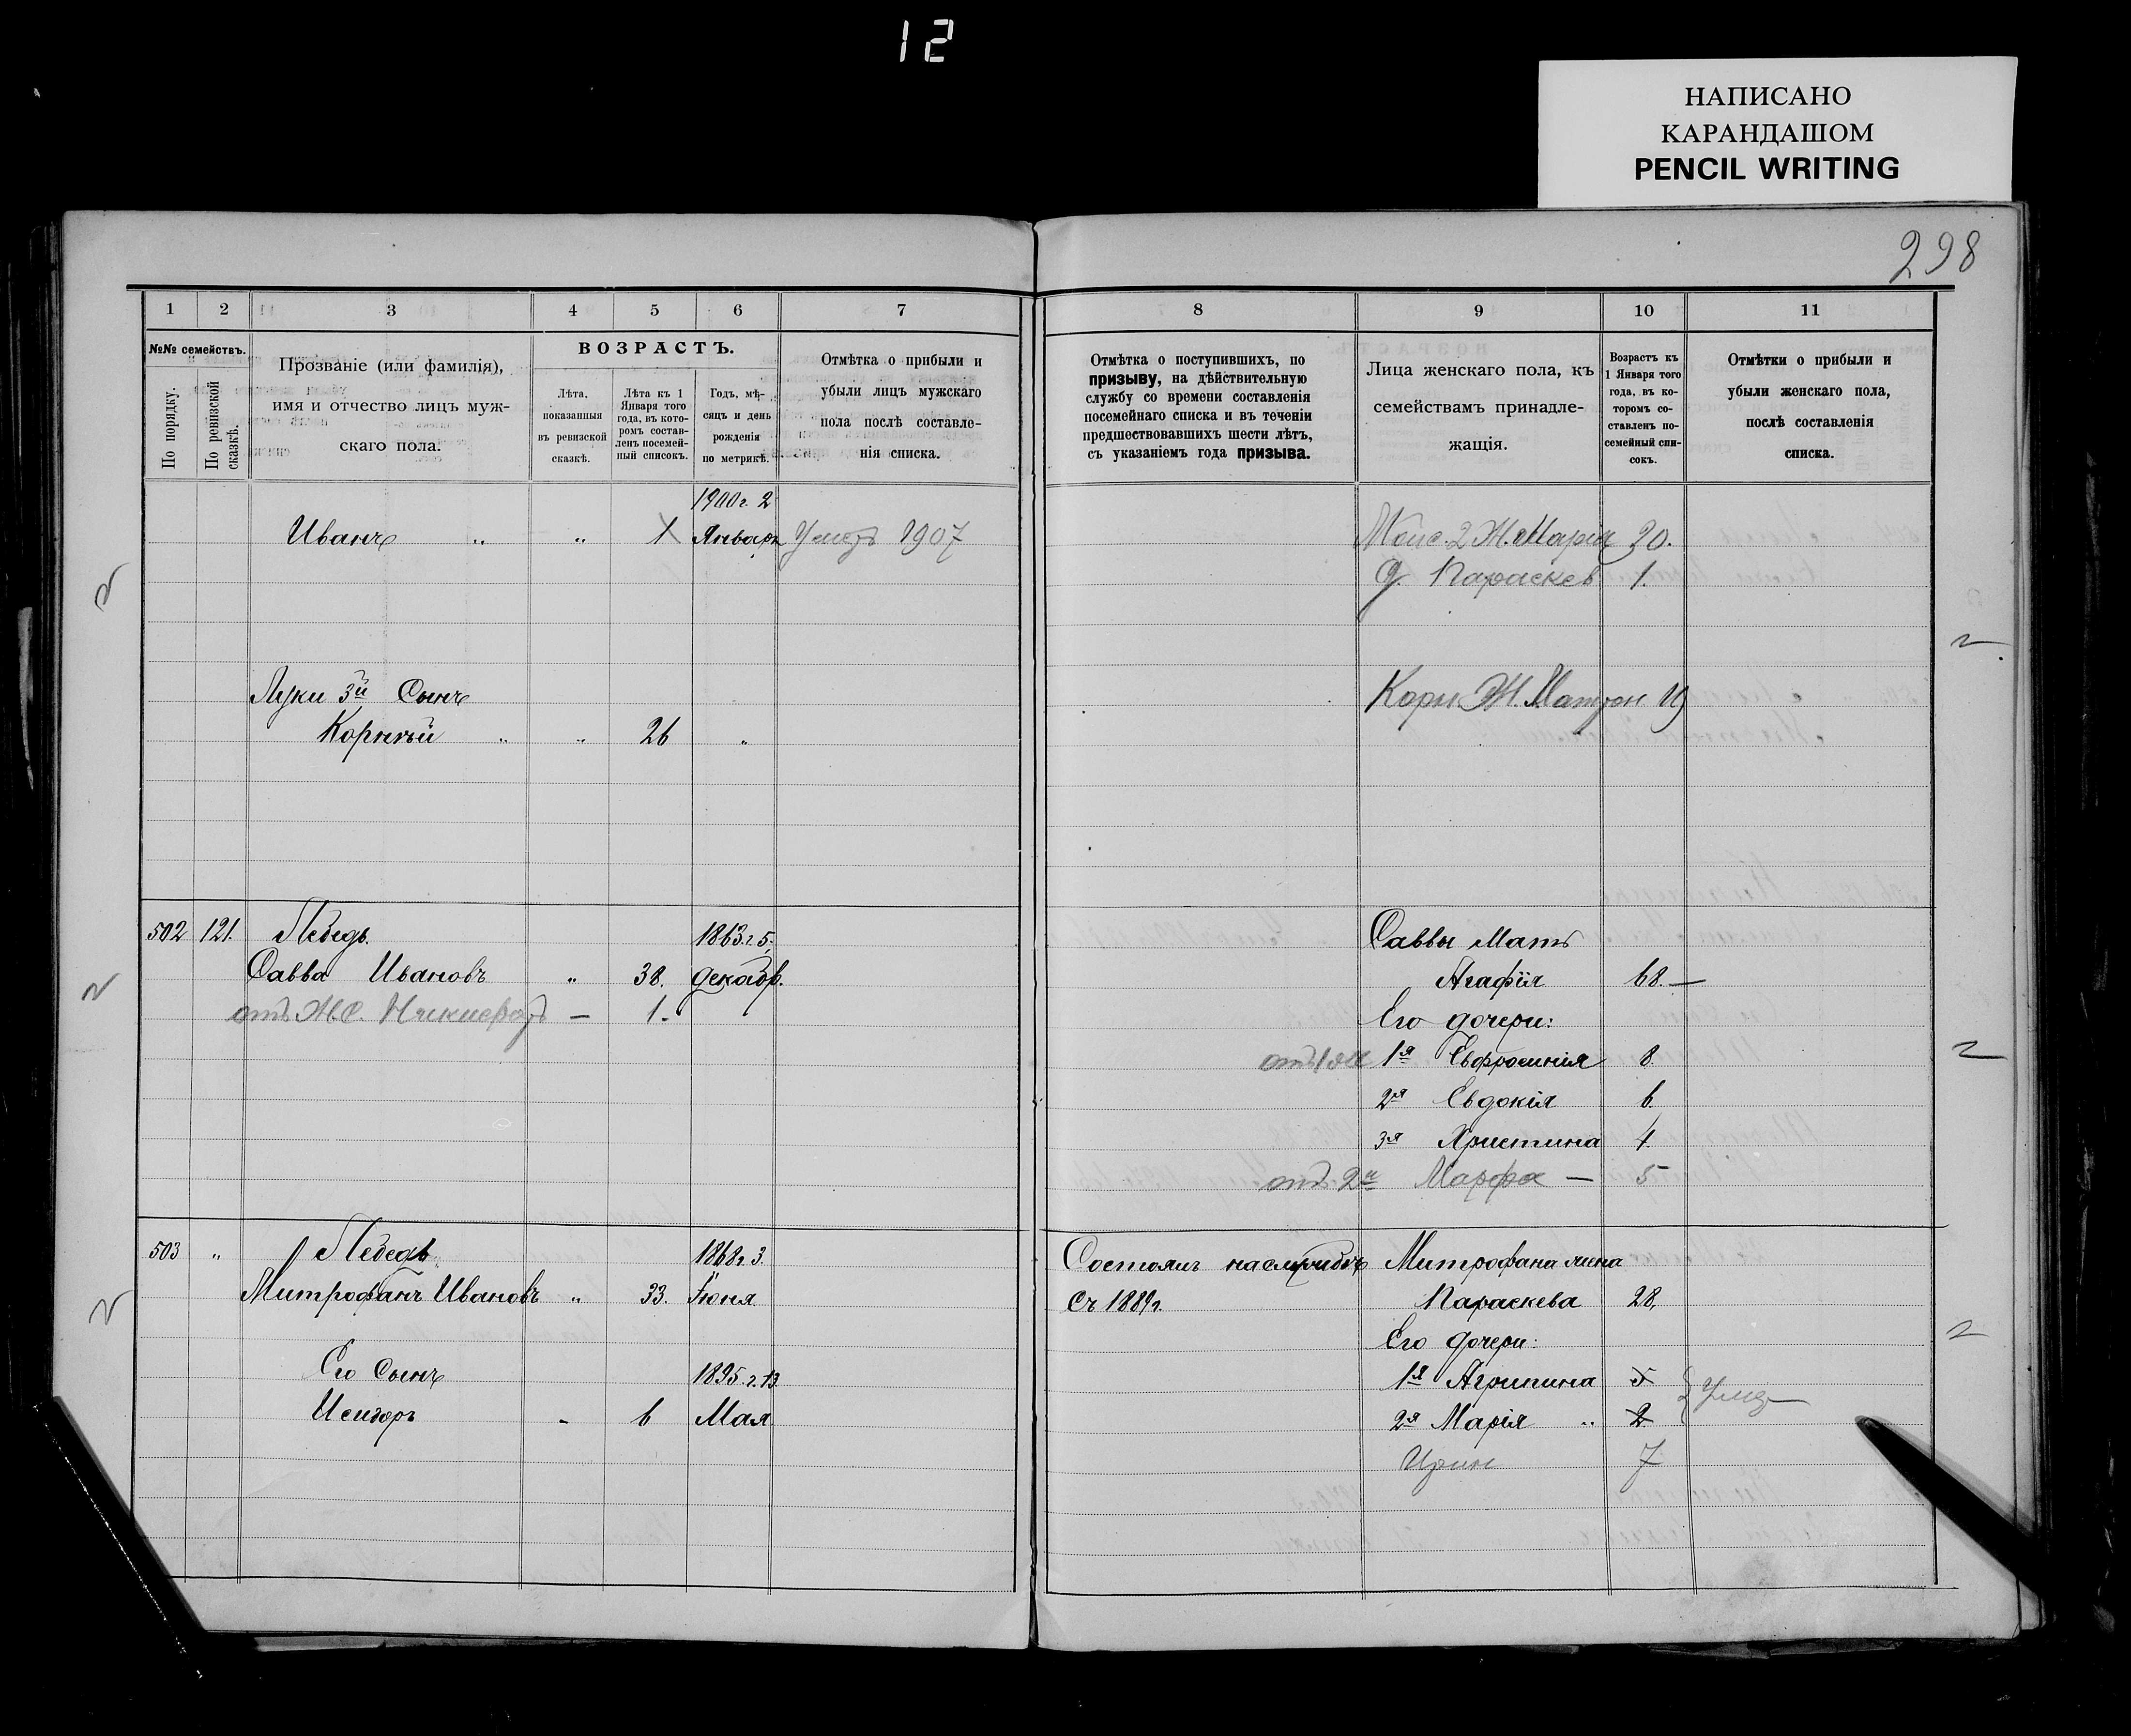 12
НАПИСАНО
КАРАНДАШОМ
PENCIL WRITING
298
1 2 3 4 5 6 7
№№ семействъ.
По порядку.
По ревизской сказкѣ.
Прозваніе (или фамилія),
имя и отчество лицъ муж-
скаго пола.
ВОЗРАСТЪ.
Лѣта,
показанныя
въ ревизской
сказкѣ.
Лѣта къ 1
Января того
года, въ кото-
ромъ состав-
ленъ посемей-
ный список.
Годъ, мѣ-
сяцъ и день
рожденія
по метрикѣ.
Отмѣтка о прибыли и
убыли лицъ мужскаго
пола послѣ составле-
нія списка.
1900 г. 2
Иванъ " " 1 Январ Умеръ 1907
Луки 3й Сынъ
Корнѣй " " 26 "
502 121. Лебедь. 1863 г. 5
Савва Ивановъ " 38. декабр.
отъ — 1.
503 " Лебедь 1868 г. 3.
Митрофанъ Ивановъ " 33. Іюня
Его Сынъ 1895. г. 13
Исидоръ - 6 Мая
8 9 10 11
Отмѣтка о поступившихъ, по
призыву, на дѣйствительную
службу со времени составленія
посемейнаго списка и въ теченіи
предшествовавшихъ шести лѣтъ,
съ указаніемъ года призыва.
Лица женскаго пола, къ
семействамъ принадле-
жащія.
Возрастъ къ
1 Января того
года, въ ко-
торомъ со-
ставленъ по-
семейный спи-
сокъ.
Отмѣтки о прибыли и
убыли женскаго пола,
послѣ составленія
списка.
Моис. 2 Ж. Марія 30.
д. Параскев 1.
Корн Ж. Матрон 19
Саввы Мать
Агафія 68. —
Его дочери:
1я Евфросинія 8.
2я Евдокія 6.
3я Христина 4.
отъ 2й Марфа — 5
Митрофана жена
Съ 1889 г. Параскева 28,
Его дочери:
1я Агрипина 5
2я Марія " 2
Ирин 7